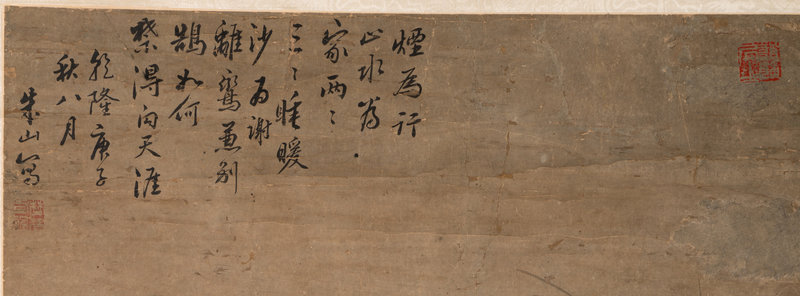 煙為行
止水為
家兩〻
三〻睡暖
沙為謝
離鸞兼別
鵠如何
禁得向天涯
乾隆庚子
秋八月
朱山寫